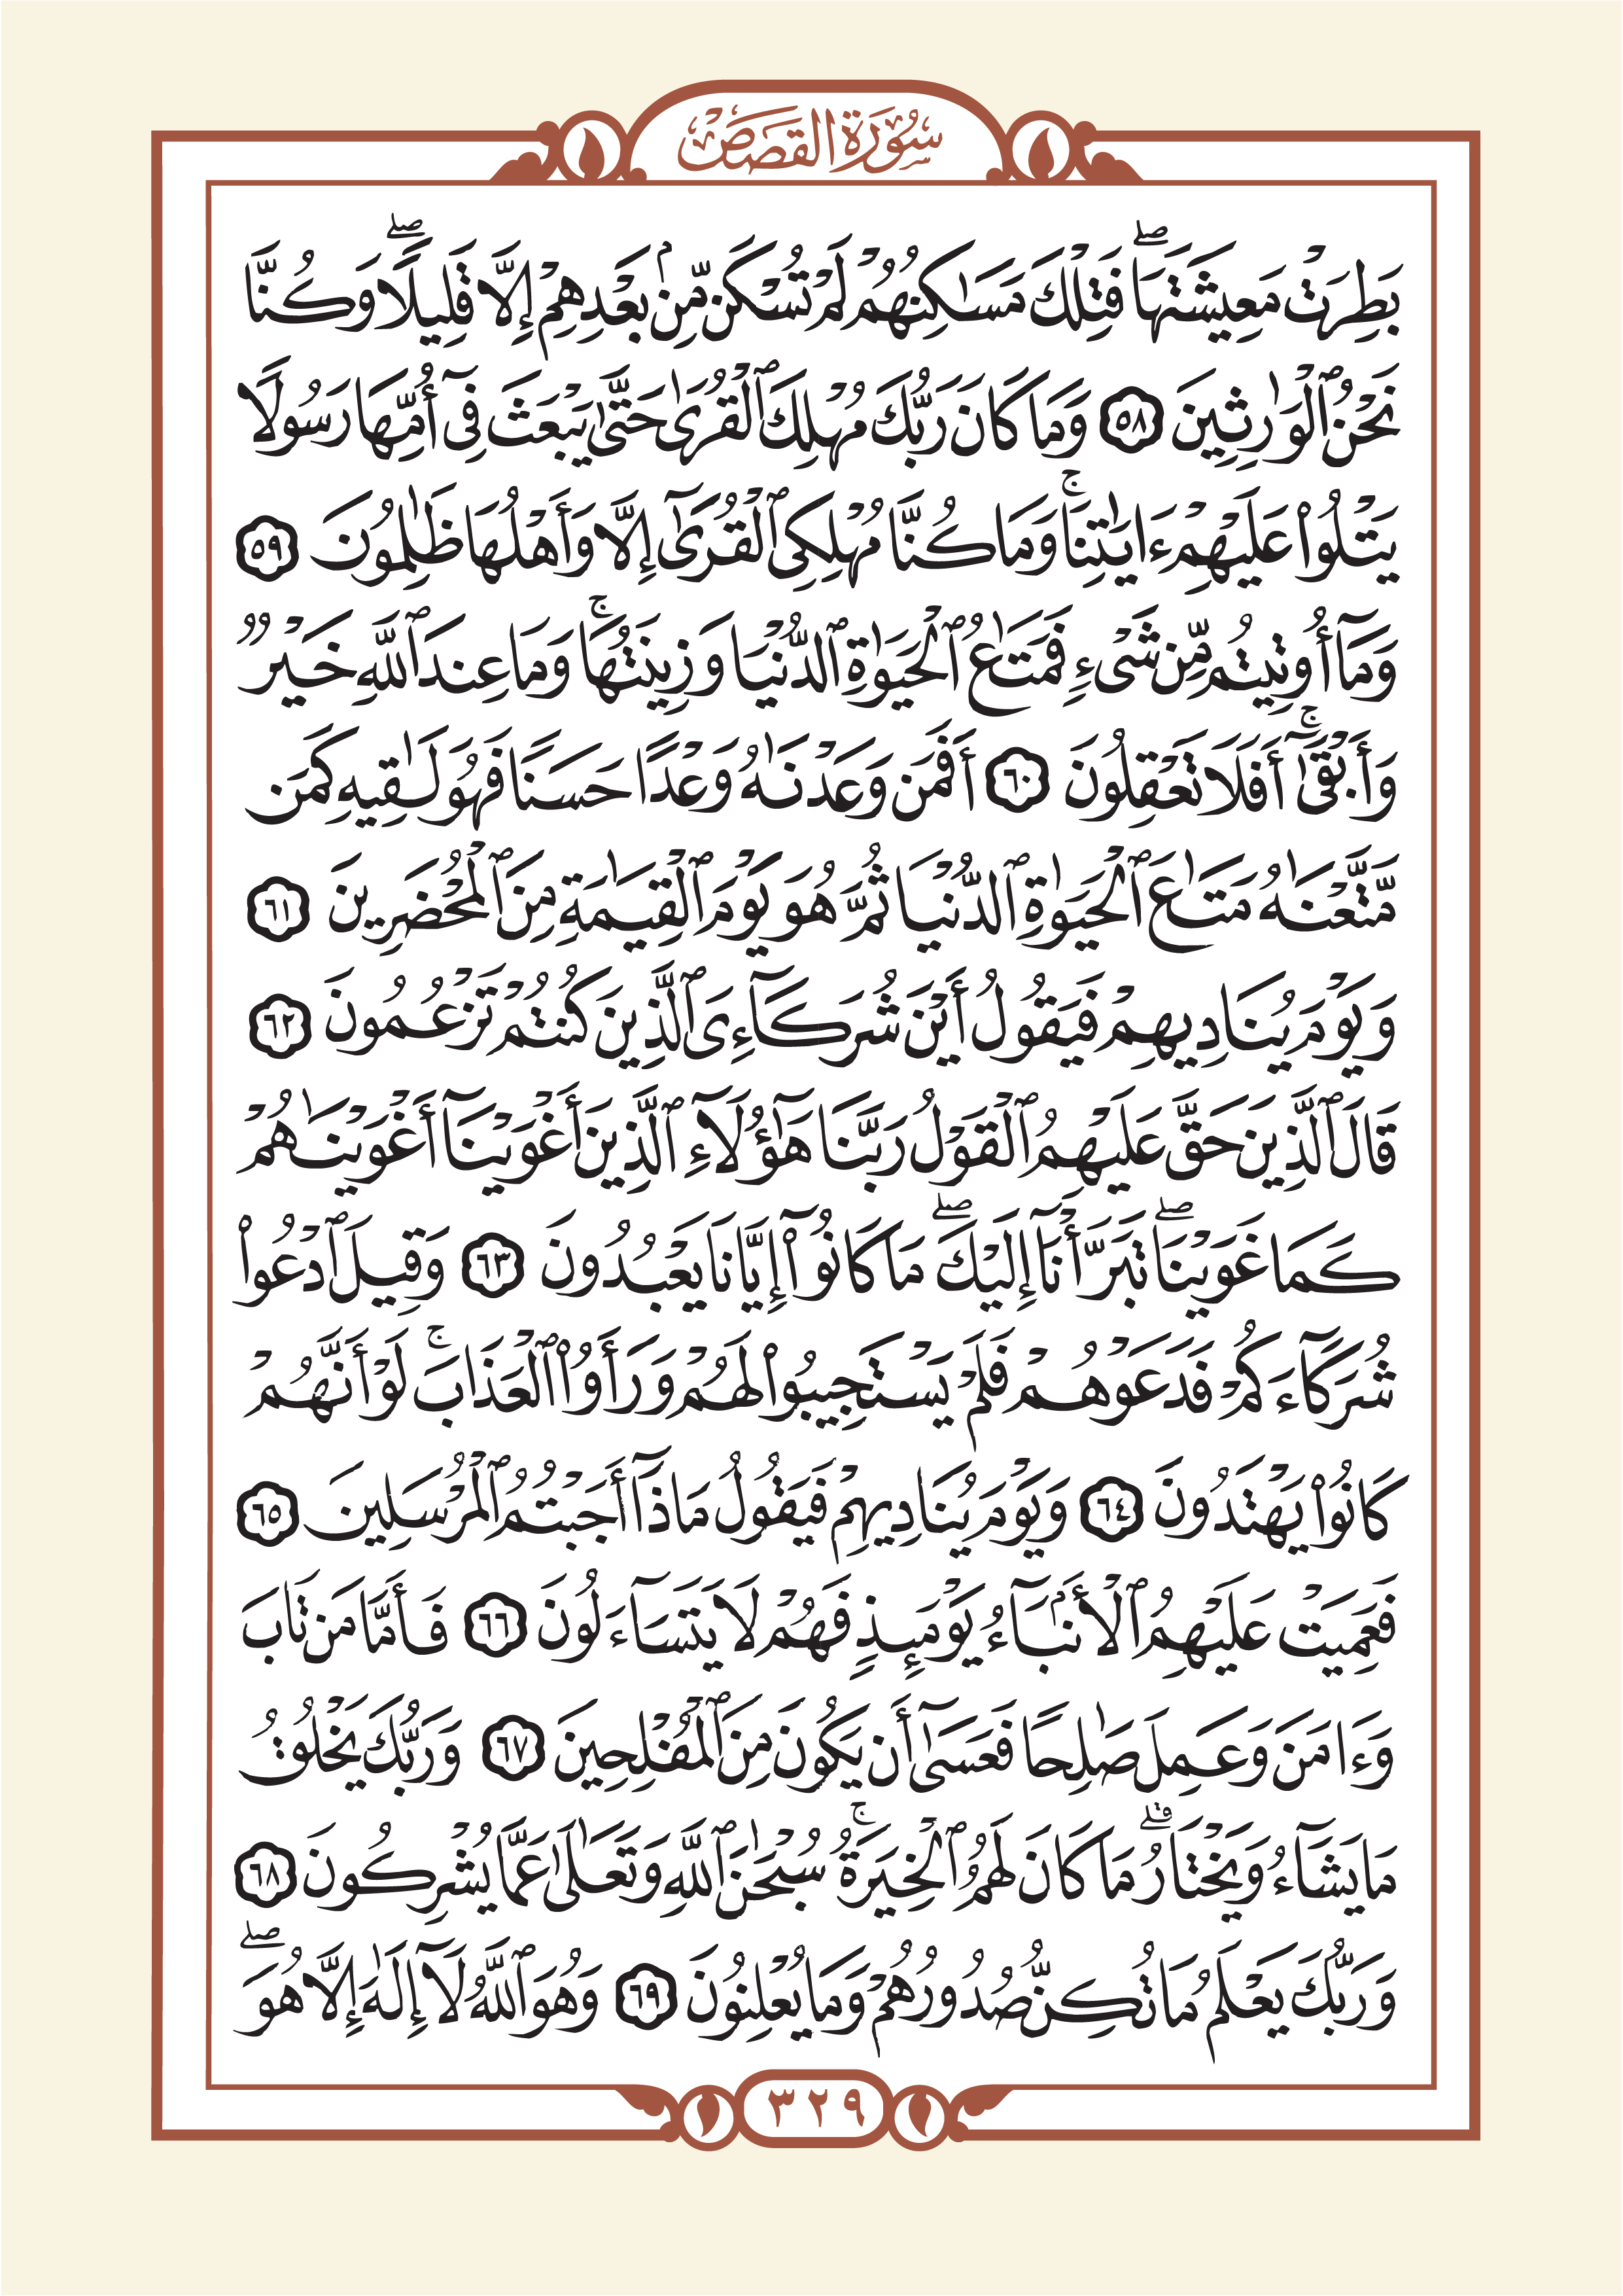 سُورَةُ القَصَصِ
بَطِرَتْ مَعِيشَتَهَاۖ فَتِلْكَ مَسَٰكِنُهُمْ لَمْ تُسْكَن مِّنۢ بَعْدِهِمْ إِلَّا قَلِيلًاۖ وَكُنَّا
نَحْنُ ٱلْوَٰرِثِينَ ٥٨ وَمَا كَانَ رَبُّكَ مُهْلِكَ ٱلْقُرَىٰ حَتَّىٰ يَبْعَثَ فِىٓ أُمِّهَا رَسُولًا
يَتْلُوا۟ عَلَيْهِمْ ءَايَٰتِنَاۚ وَمَا كُنَّا مُهْلِكِى ٱلْقُرَىٰٓ إِلَّا وَأَهْلُهَا ظَٰلِمُونَ ٥٩
وَمَآ أُوتِيتُم مِّن شَىْءٍ فَمَتَٰعُ ٱلْحَيَوٰةِ ٱلدُّنْيَا وَزِينَتُهَاۚ وَمَا عِندَ ٱللَّهِ خَيْرٌ
وَأَبْقَىٰٓۚ أَفَلَا تَعْقِلُونَ ٦٠ أَفَمَن وَعَدْنَٰهُ وَعْدًا حَسَنًا فَهُوَ لَٰقِيهِ كَمَن
مَّتَّعْنَٰهُ مَتَٰعَ ٱلْحَيَوٰةِ ٱلدُّنْيَا ثُمَّ هُوَ يَوْمَ ٱلْقِيَٰمَةِ مِنَ ٱلْمُحْضَرِينَ ٦١
وَيَوْمَ يُنَادِيهِمْ فَيَقُولُ أَيْنَ شُرَكَآءِىَ ٱلَّذِينَ كُنتُمْ تَزْعُمُونَ ٦٢
قَالَ ٱلَّذِينَ حَقَّ عَلَيْهِمُ ٱلْقَوْلُ رَبَّنَا هَٰٓؤُلَآءِ ٱلَّذِينَ أَغْوَيْنَآ أَغْوَيْنَٰهُمْ
كَمَا غَوَيْنَاۖ تَبَرَّأْنَآ إِلَيْكَۖ مَا كَانُوٓا۟ إِيَّانَا يَعْبُدُونَ ٦٣ وَقِيلَ ٱدْعُوا۟
شُرَكَآءَكُمْ فَدَعَوْهُمْ فَلَمْ يَسْتَجِيبُوا۟ لَهُمْ وَرَأَوُا۟ ٱلْعَذَابَۚ لَوْ أَنَّهُمْ
كَانُوا۟ يَهْتَدُونَ ٦٤ وَيَوْمَ يُنَادِيهِمْ فَيَقُولُ مَاذَآ أَجَبْتُمُ ٱلْمُرْسَلِينَ ٦٥
فَعَمِيَتْ عَلَيْهِمُ ٱلْأَنۢبَآءُ يَوْمَئِذٍ فَهُمْ لَا يَتَسَآءَلُونَ ٦٦ فَأَمَّا مَن تَابَ
وَءَامَنَ وَعَمِلَ صَٰلِحًا فَعَسَىٰٓ أَن يَكُونَ مِنَ ٱلْمُفْلِحِينَ ٦٧ وَرَبُّكَ يَخْلُقُ
مَا يَشَآءُ وَيَخْتَارُۗ مَا كَانَ لَهُمُ ٱلْخِيَرَةُۚ سُبْحَٰنَ ٱللَّهِ وَتَعَٰلَىٰ عَمَّا يُشْرِكُونَ ٦٨
وَرَبُّكَ يَعْلَمُ مَا تُكِنُّ صُدُورُهُمْ وَمَا يُعْلِنُونَ ٦٩ وَهُوَ ٱللَّهُ لَآ إِلَٰهَ إِلَّا هُوَۖ
٣٢٩